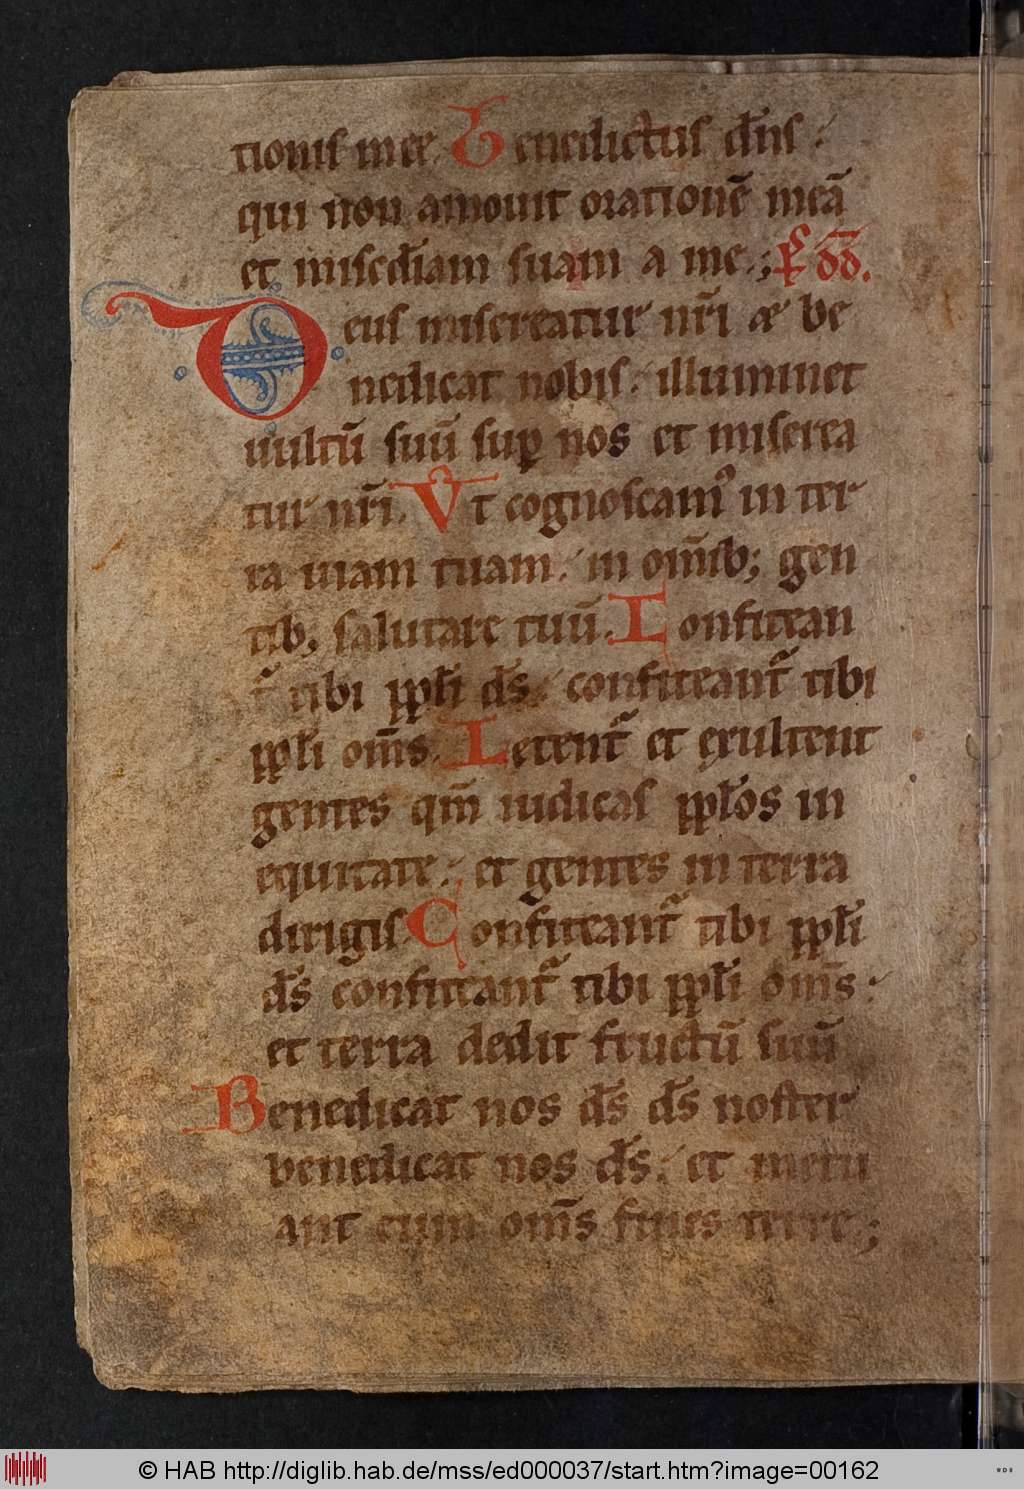 tionis mee. Benedictus dn̄s.
qui non amouit orationē meā
et misedīam suam a me.; P̄s dd̄.
Deus misereatur nr̄i & be
nedicat nobis. illuminet
uultū suū sup̱ nos et miserea
tur nr̄i. Vt cognoscamꝰ in ter
ra uiam tuam. in om̄ib; gen
tib; salutare tuū. Confitean
t᷑ tibi pp̱l̄i ds̄. confiteant᷑ tibi
pp̱l̄i om̄s. Letent᷑ et exultent
gentes qm̄ iudicas pp̱l̄os in
equitate. et gentes in terra
dirigis. Confiteant᷑ tibi pp̱l̄i
ds̄ confiteant᷑ tibi pp̱l̄i om̄s.
et terra dedit fructū suū
Benedicat nos ds̄ ds̄ noster
benedicat nos ds̄. et metu
ant eum om̄s fines terre;
© HAB http://diglib.hab.de/mss/ed000037/start.htm?image=00162